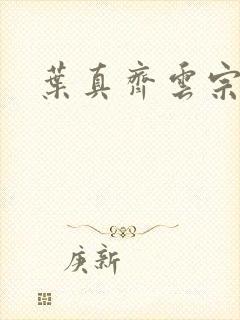 葉真齊雲宗
庚新